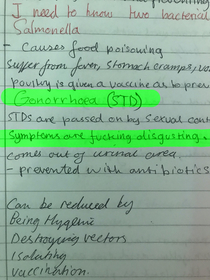 I need to know two bacterial
Salmonella
- Causes food poisoning
suffer from fever, stomach cramps,
Poultry is given a vaccine to
Gonorrhoea (STD)
STDs are passed on by sexual
Symptoms are fucking disgusting.
comes out of urinal area.
- prevented with antibiotics
Can be reduced by
Being Hygenic
Destroying vectors
Isolating
vaccination.